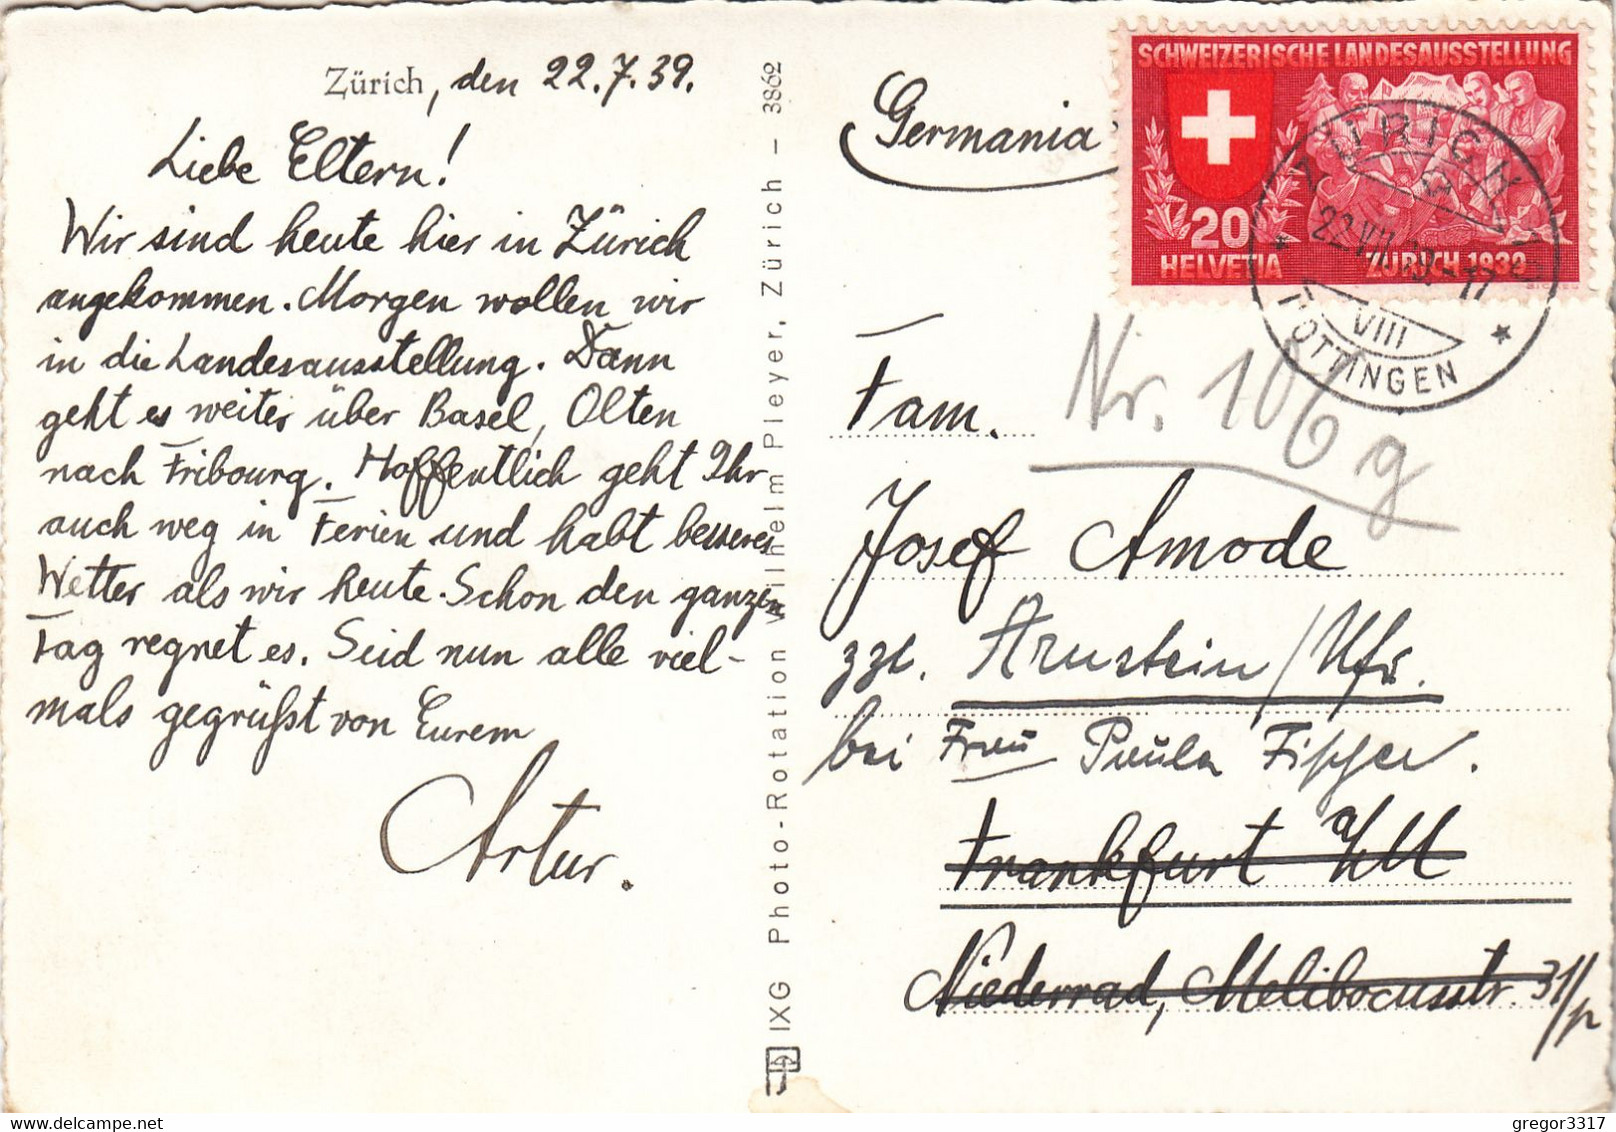 Zürich, den 22.7.39.
Liebe Eltern!
Wir sind heute hier in Zürich
angekommen. Morgen wollen wir
in die Landesausstellung. Dann
geht es weiter über Basel, Olten
nach Fribourg. Hoffentlich geht Ihr
auch weg in Ferien und habt besseres
Wetter als wir heute. Schon den ganzen
Tag regnet es. Seid nun alle viel-
mals gegrüßt von Eurem
Artur.
IXG Photo-Rotation Wilhelm Pleyer, Zürich - 3862
Germania
SCHWEIZERISCHE LANDESAUSSTELLUNG
20
HELVETIA ZÜRICH 1939
ZÜRICH
22.VII.39.-17
VIII
FLUNTERN
Fam. Nr. 106 g
Josef Amode
zzt. Arnstein/Ufr.
bei Frau Paula Fischer.
Frankfurt a/M
Niederrad, Melibocusstr. 31/p
gregor3317